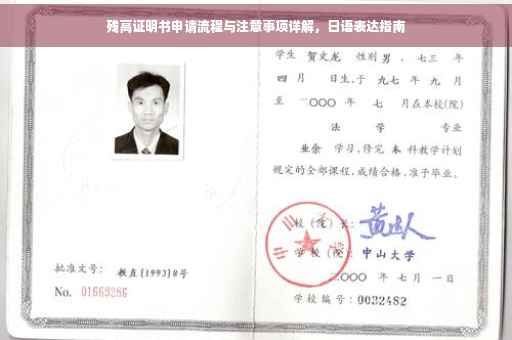 残高证明书申请流程与注意事项详解，日语表达指南
学生 贺文龙 性别 男，七三 年
四 月 日生，于 九七 年 九 月
至 二〇〇〇 年 七 月在本校(院)
法 学 专业
业余 学习，修完 本 科教学计划
规定的全部课程，成绩合格，准予毕业。
校(院)长：
学校(院)：中山大学
二〇〇〇 年 七 月 一 日
学校编号：0032482
批准文号： 教直[1993]8号
No. 01663286